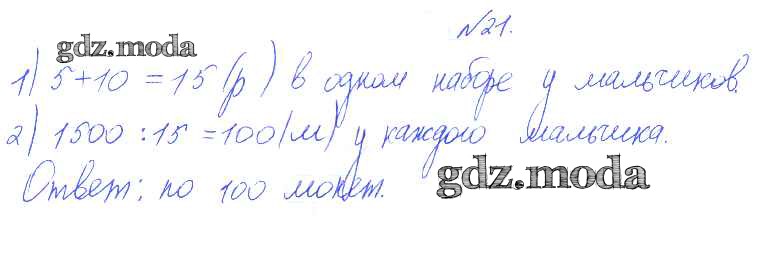 №21.
gdz.moda
1) 5+10 = 15 (р) в одном наборе у мальчиков.
2) 1500 : 15 = 100 (м) у каждого мальчика.
Ответ: по 100 монет. gdz.moda